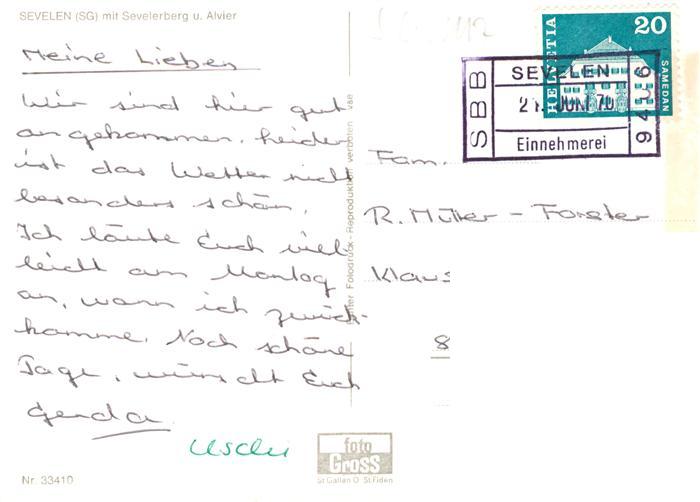 SEVELEN (SG) mit Sevelerberg u. Alvier
Meine Lieben
Wir sind hier gut
angekommen, leider
ist das Wetter nicht
besonders schön.
Ich läute Euch viel-
leicht am Montag
an, wann ich zurück-
komme. Noch schöne
Tage, wünscht Euch
Gerda
Uschi
Nr. 33410
foto
Gross
St Gallen O St Fiden
Fotodruck - Reproduktion verboten
HELVETIA
20
SAMEDAN
SBB
SEVELEN
21. JUNI 70
Einnehmerei
9
Fam.
R. Müller - Forster
Klaus
8